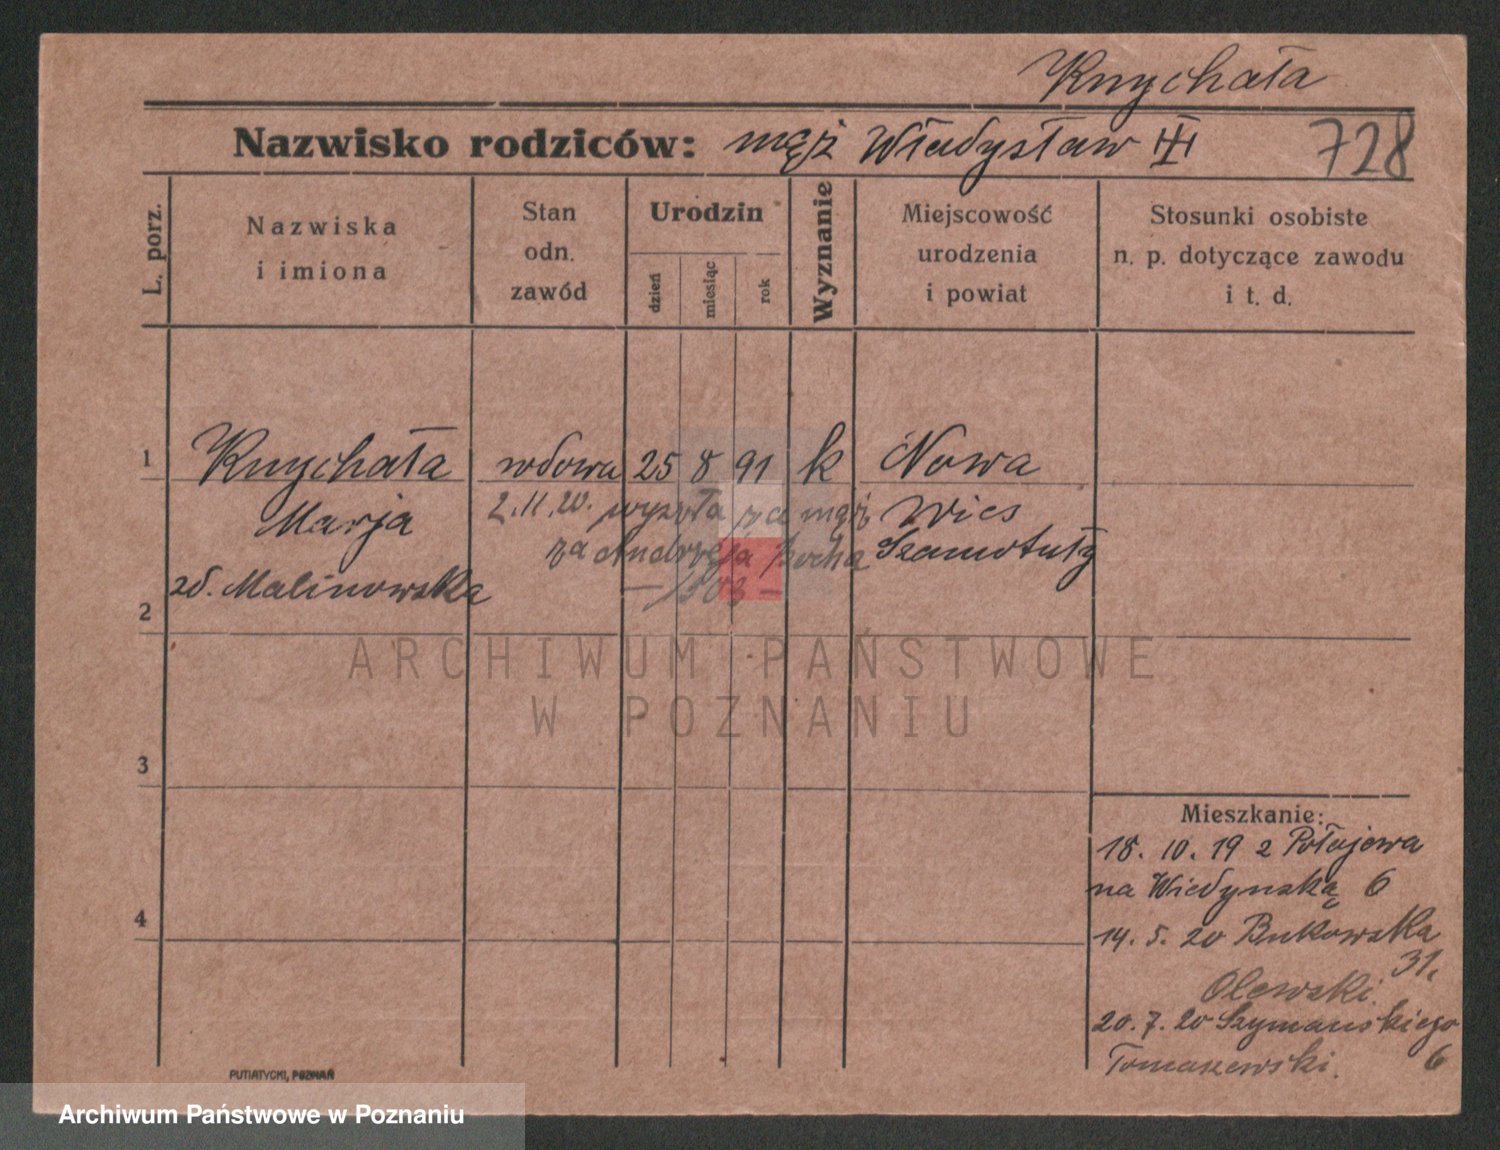 Knychała
Nazwisko rodziców: mąż Władysław
728
L. porz.
Nazwiska
i imiona
Stan
odn.
zawód
Urodzin
dzień
miesiąc
rok
Wyznanie
Miejscowość
urodzenia
i powiat
Stosunki osobiste
n. p. dotyczące zawodu
i t. d.
1 Knychała wdowa 25 8 91 k Nowa
Marja 2.11.20. wyszła za mąż Wies
za Andrzeja Szamotuły
2 zd. Malinowska
3
4
Mieszkanie:
18. 10. 19 z Połajewa
na Wiedynską 6
14. 5. 20 Bukowska
31.
Olewski.
20. 7. 20 Szymańskiego
Tomaszewski. 6
PUTIATYCKI, POZNAŃ
ARCHIWUM PAŃSTWOWE
W POZNANIU
Archiwum Państwowe w Poznaniu